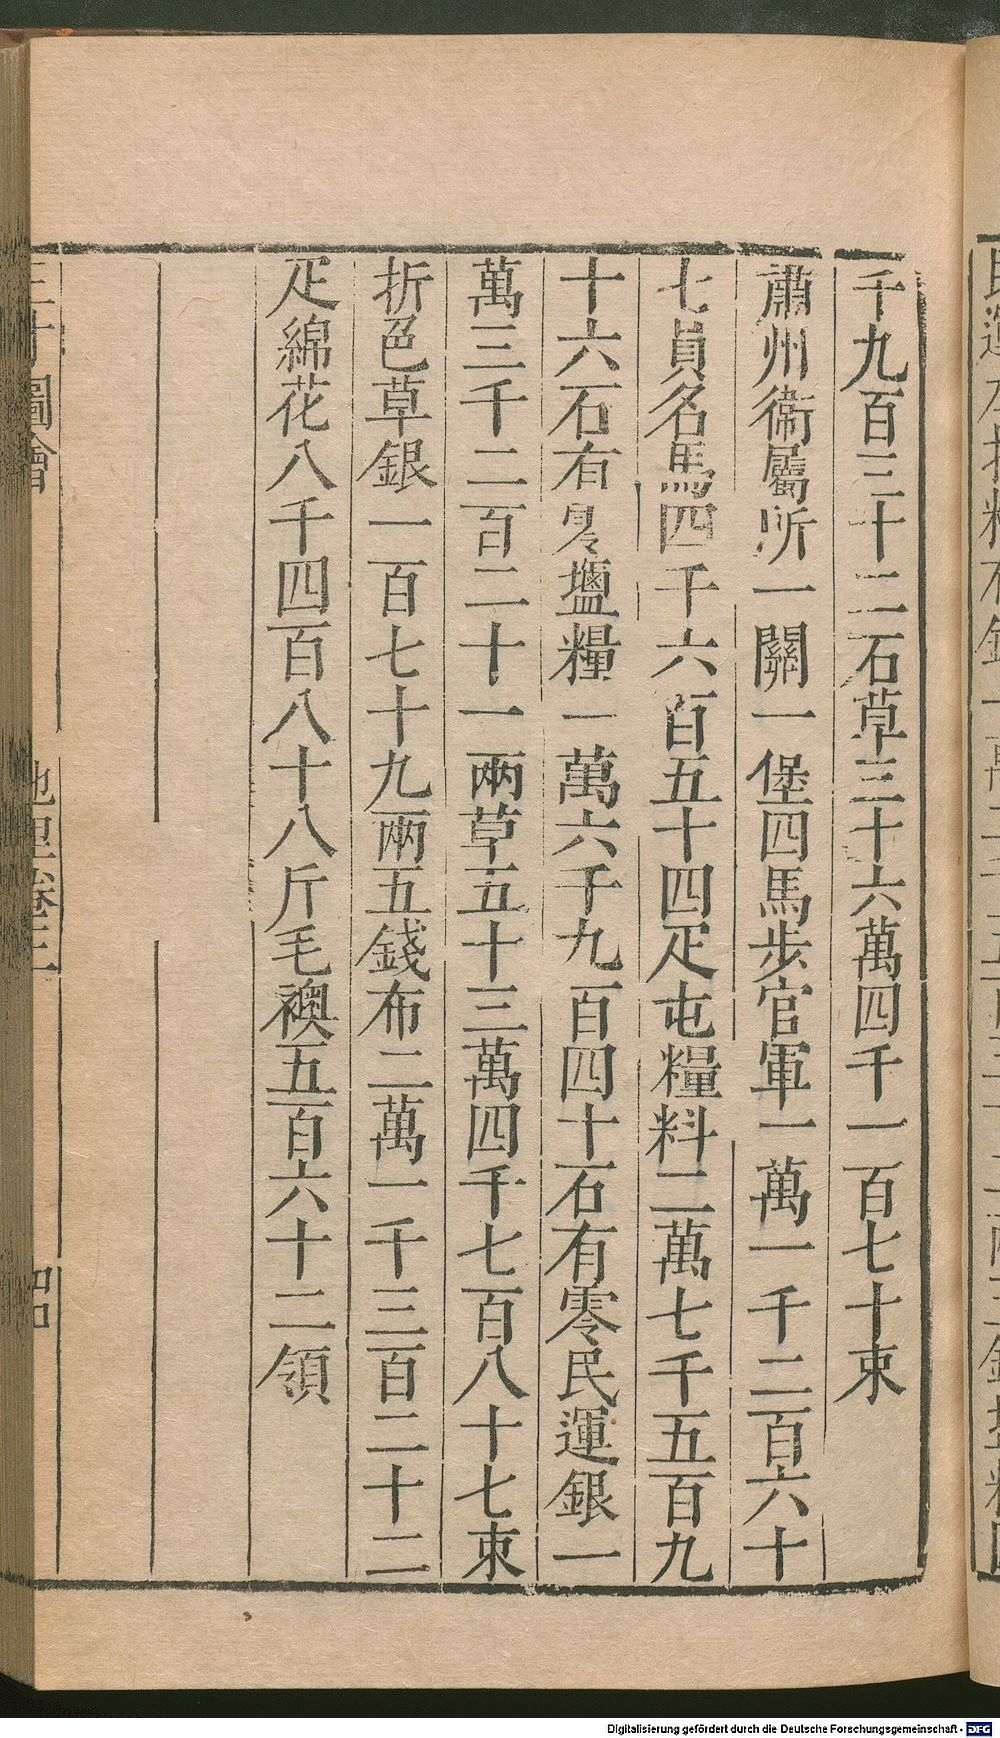 千九百三十二石草三十六萬四千一百七十束
肅州衞屬所一關一堡四馬步官軍一萬一千二百六十
七員名馬四千六百五十四疋屯糧料二萬七千五百九
十六石有零鹽糧一萬六千九百四十石有零民運銀一
萬三千二百二十一兩草五十三萬四千七百八十七束
折色草銀一百七十九兩五錢布二萬一千三百二十二
疋綿花八千四百八十八斤毛襖五百六十二領
圖會
地理卷三
Digitalisierung gefördert durch die Deutsche Forschungsgemeinschaft - DFG